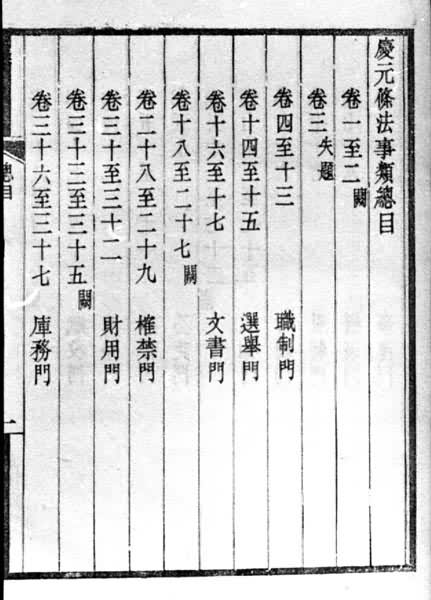 慶元條法事類總目
卷一至二 闕
卷三 失題
卷四至十三 職制門
卷十四至十五 選舉門
卷十六至十七 文書門
卷十八至二十七 闕
卷二十八至二十九 榷禁門
卷三十至三十二 財用門
卷三十三至三十五 闕
卷三十六至三十七 庫務門
總目
一